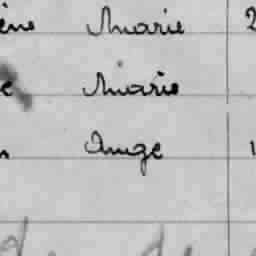 ène Marie 2
e Marie
n Ange 1